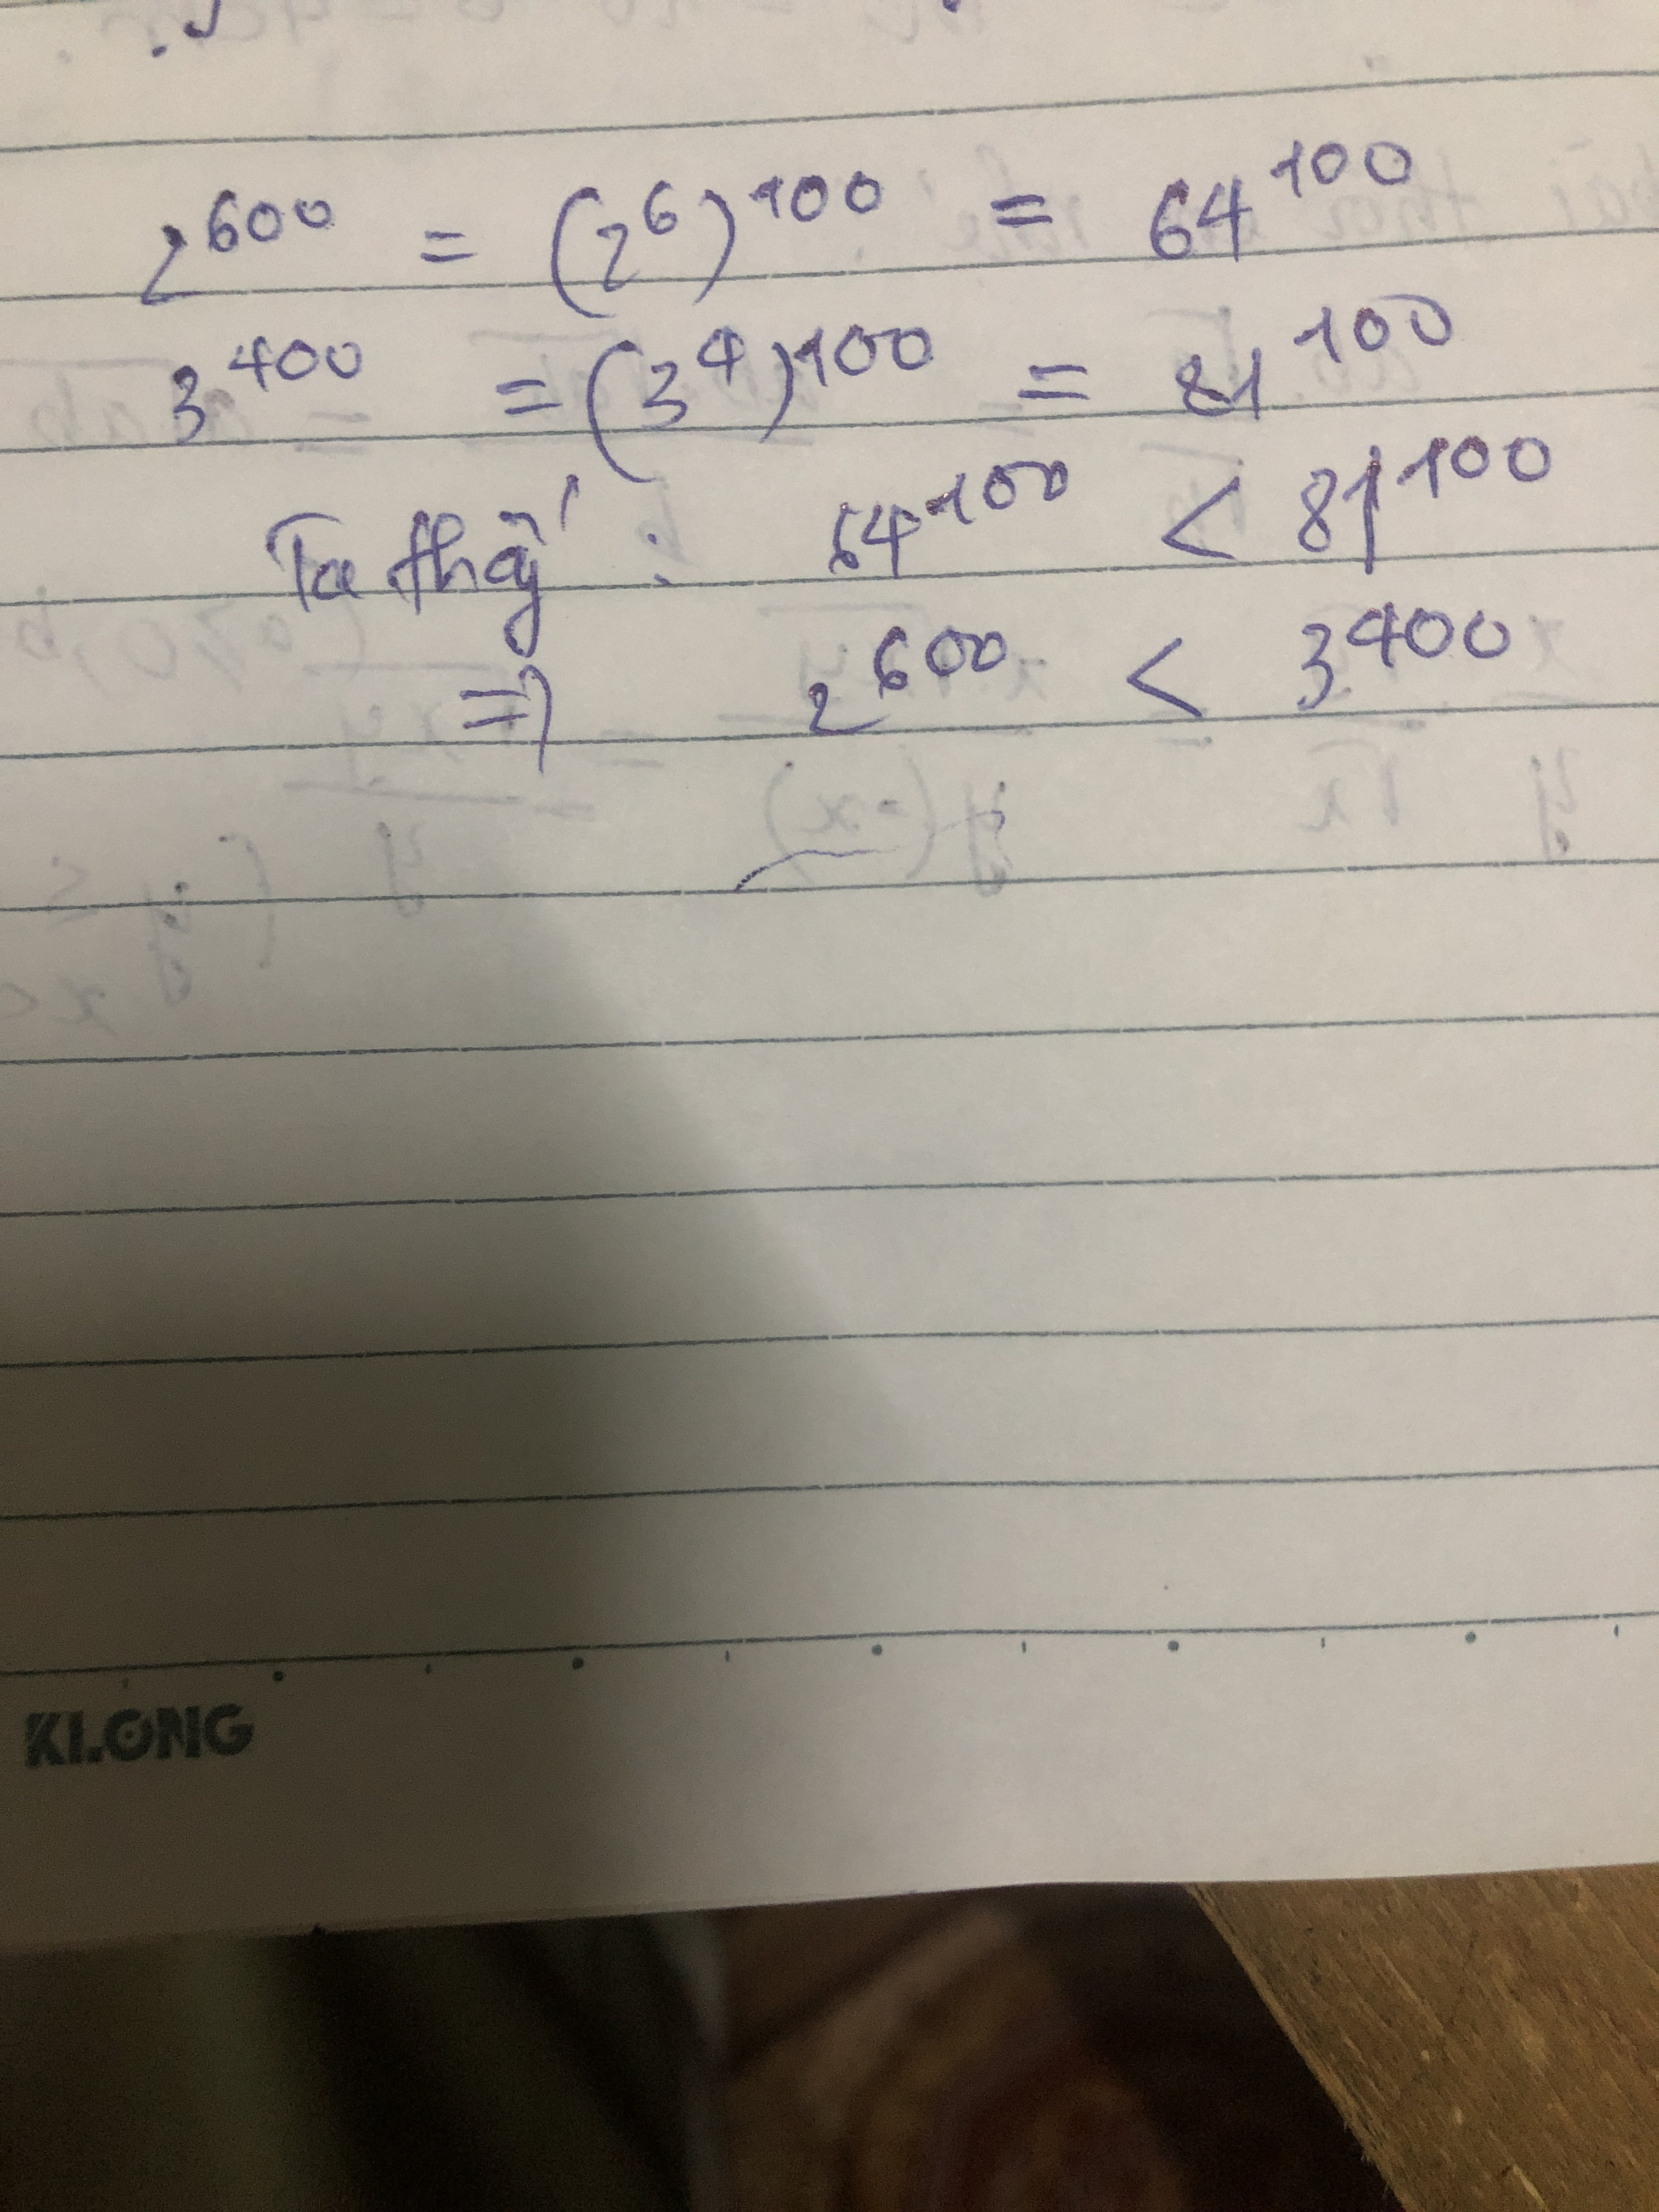 2^600 = (2^6)^100 = 64^100
3^400 = (3^4)^100 = 81^100
Ta thấy : 64^100 < 81^100
=> 2^600 < 3^400
KLONG